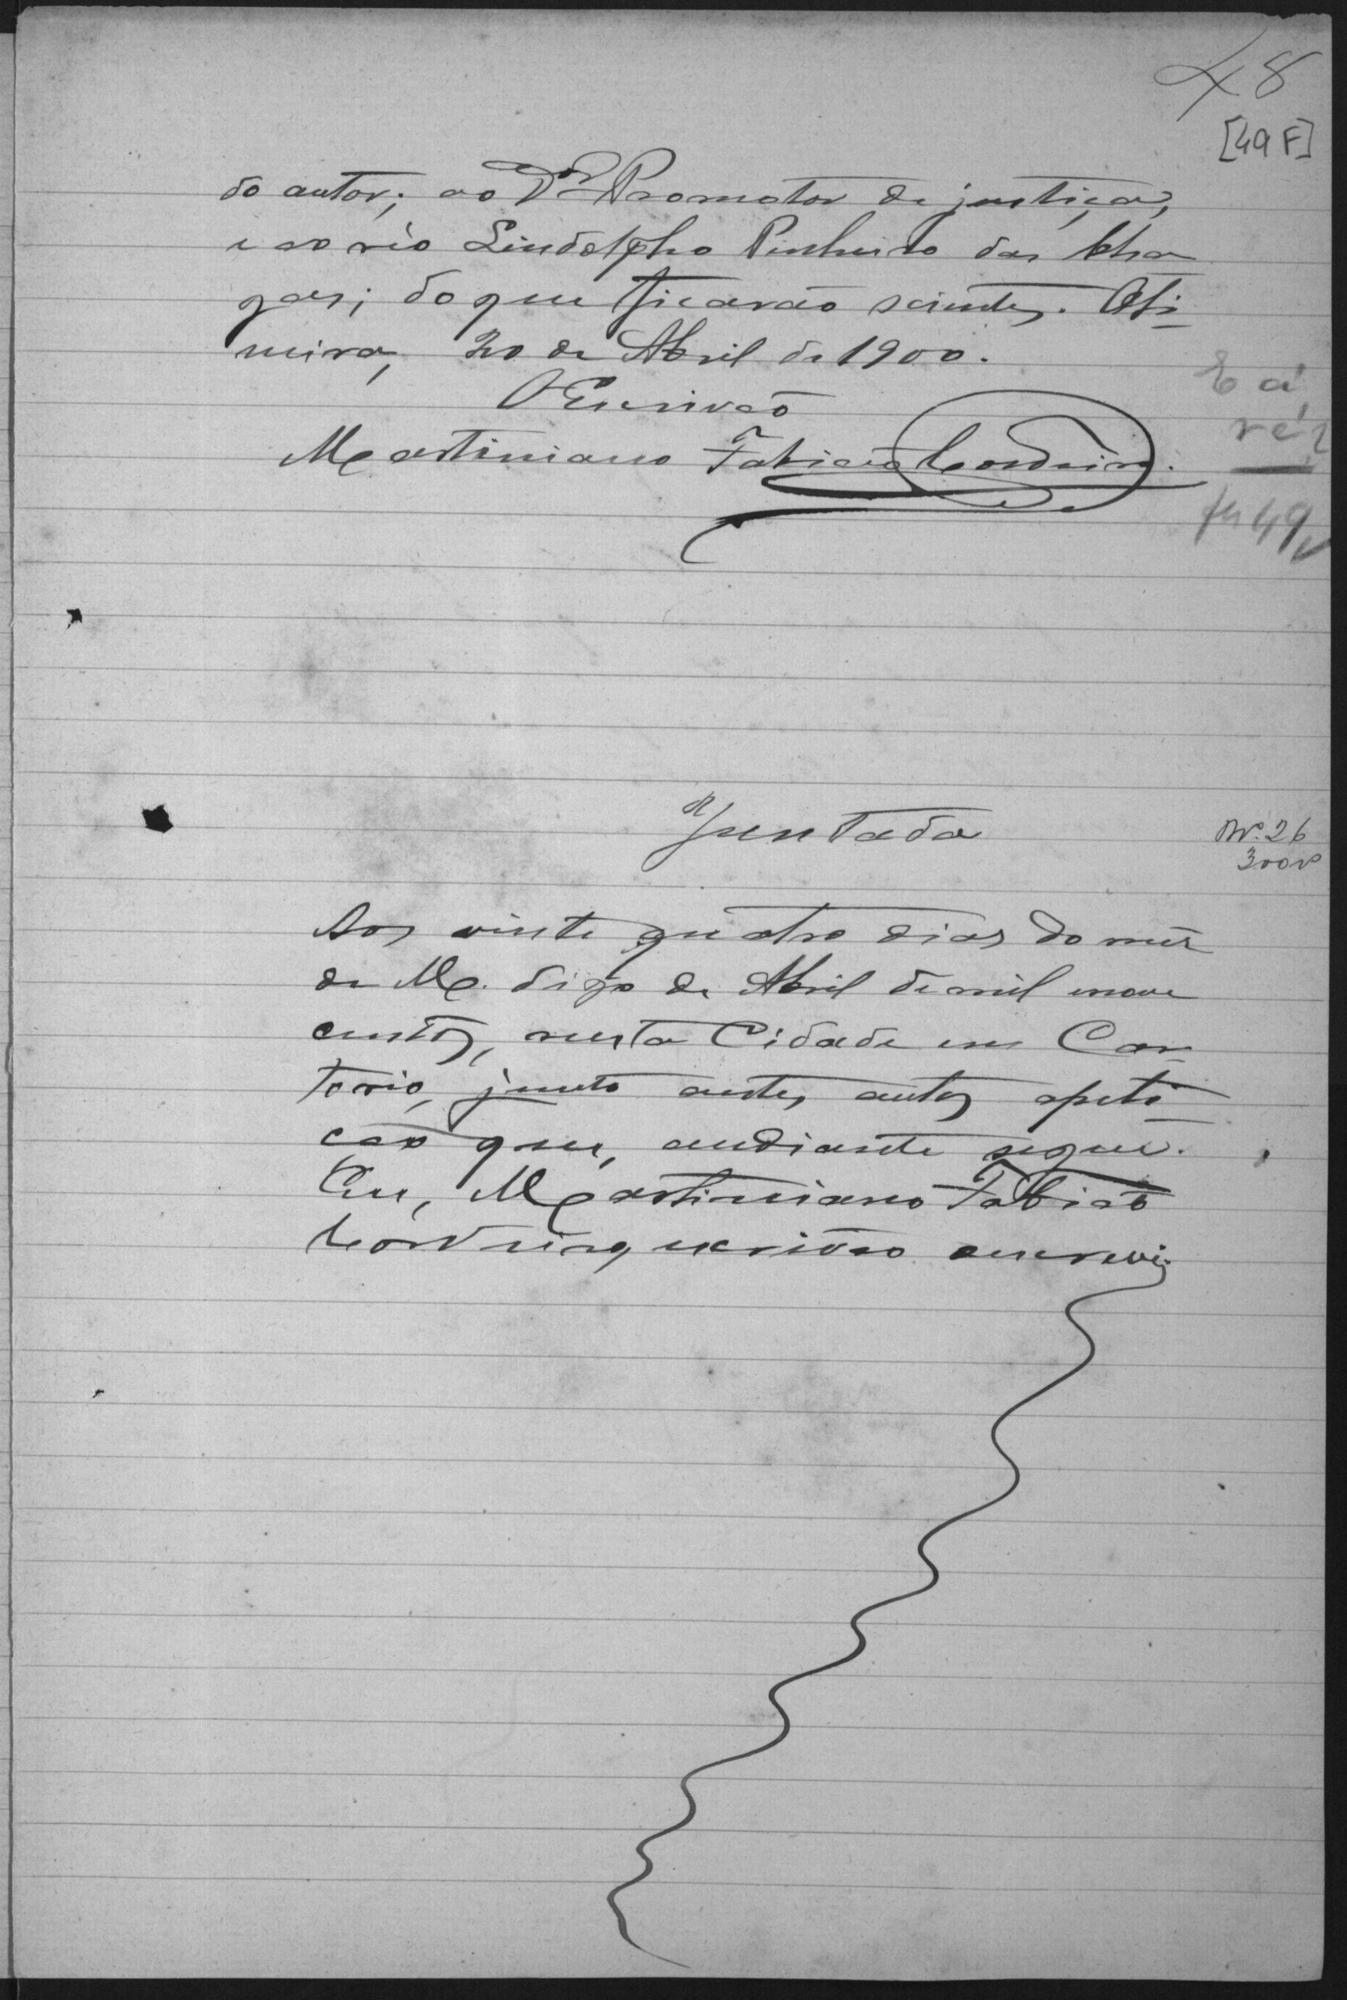 48
[49 F]
do autor; ao Dr. Promotor de justiça,
e ao réo Lindolpho Pinheiro das Cha
gas; do que ficarão scientes.
20 de Abril de 1900.
O Escrivão
Martiniano Fabião Cordeiro.
E á
ré?
fl 49v
Juntada
Nº. 26
Aos vinte quatro dias do mez
de M. digo de Abril de mil nove
centos, nesta Cidade em Car
torio, junto a estes autos a peti
ção que, a o diante segue.
Eu, Martiniano Fabião
Cordeiro, escrivão escrevi